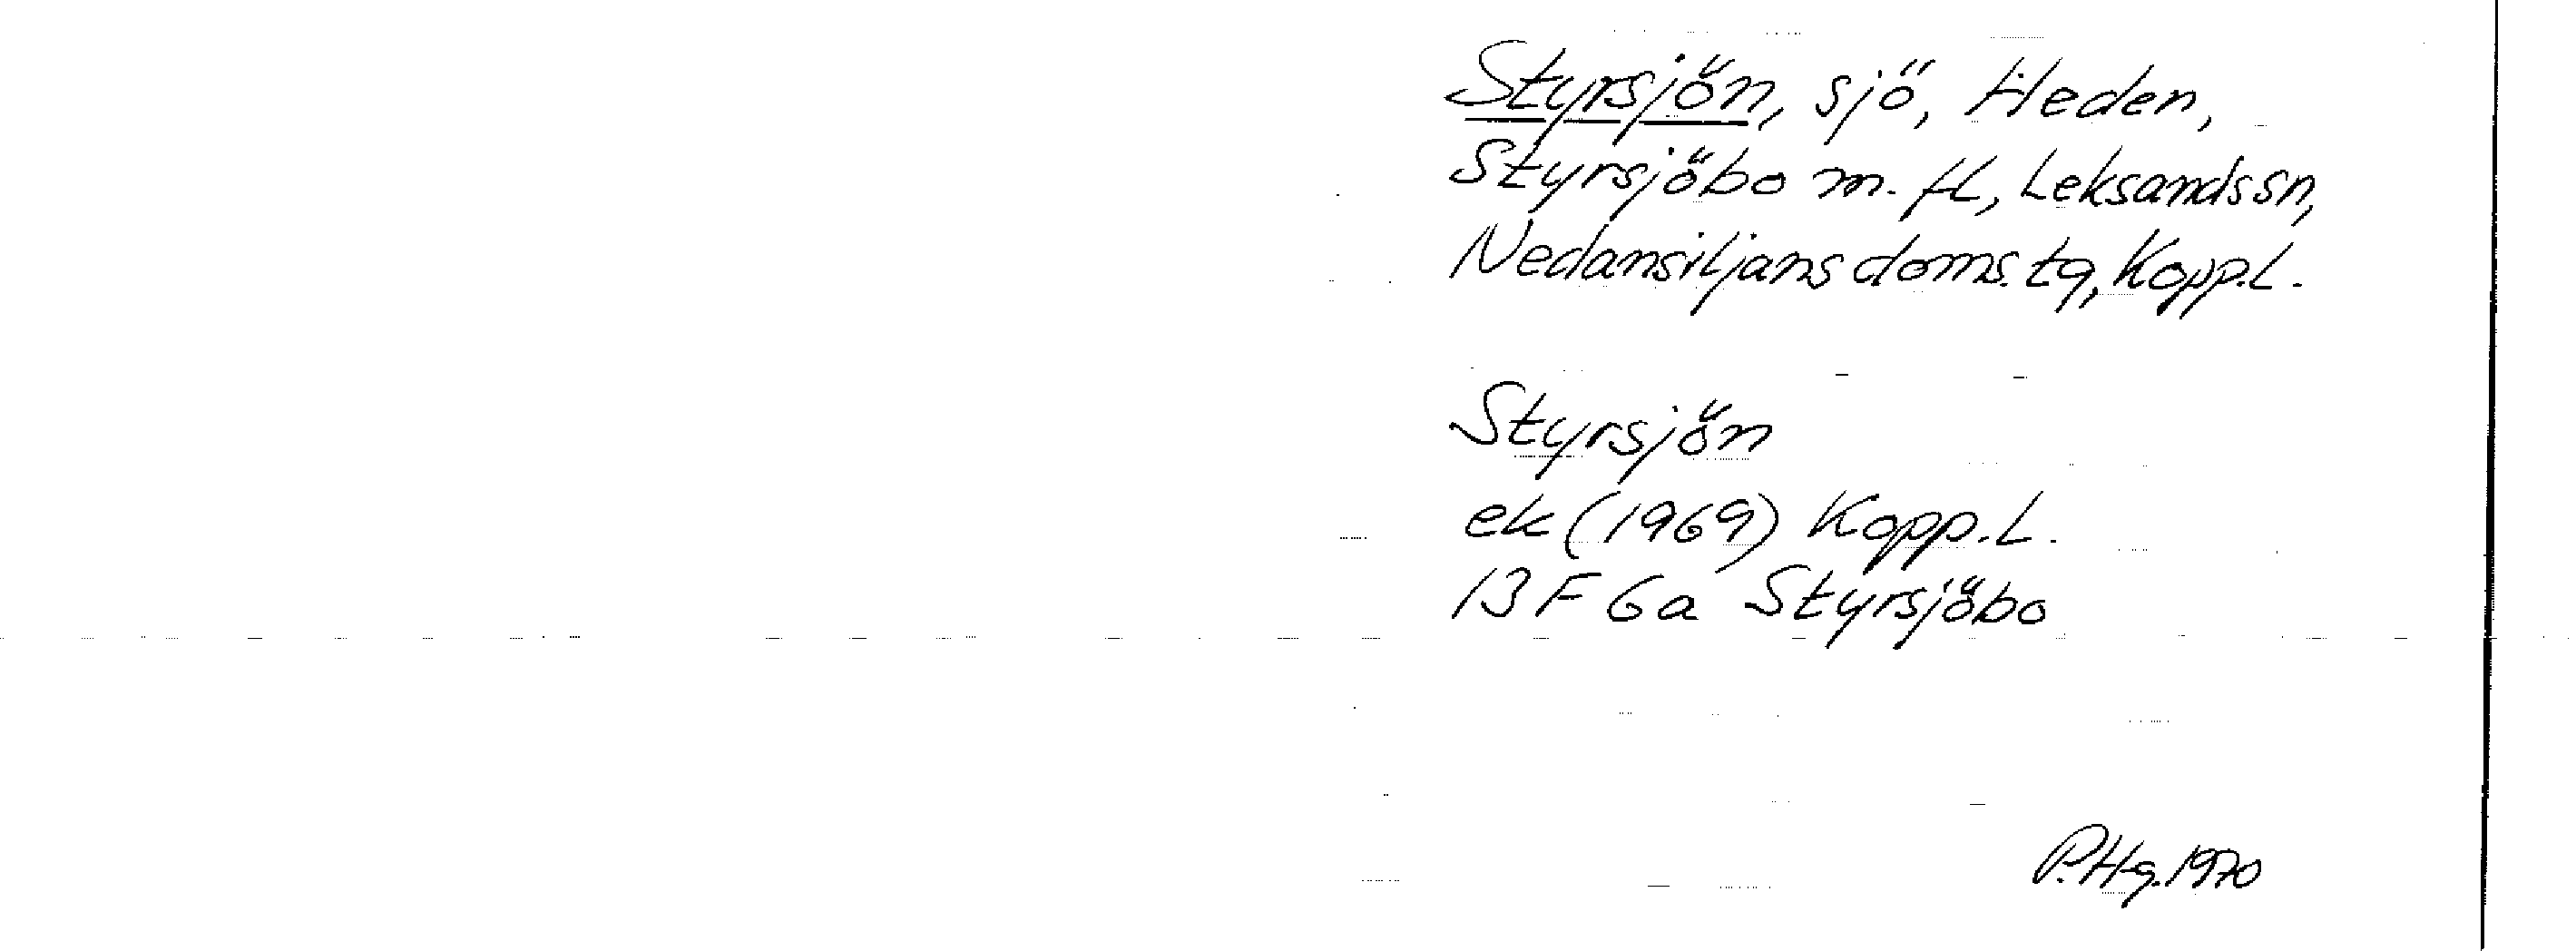 Styrsjön, sjö, Heden,
Styrsjöbo m. fl, Leksands sn,
Nedansiljans doms. tg, Kopp.l.
Styrsjön
ek (1969) Kopp.l.
13 F 6a Styrsjöbo
P.Hg. 1970